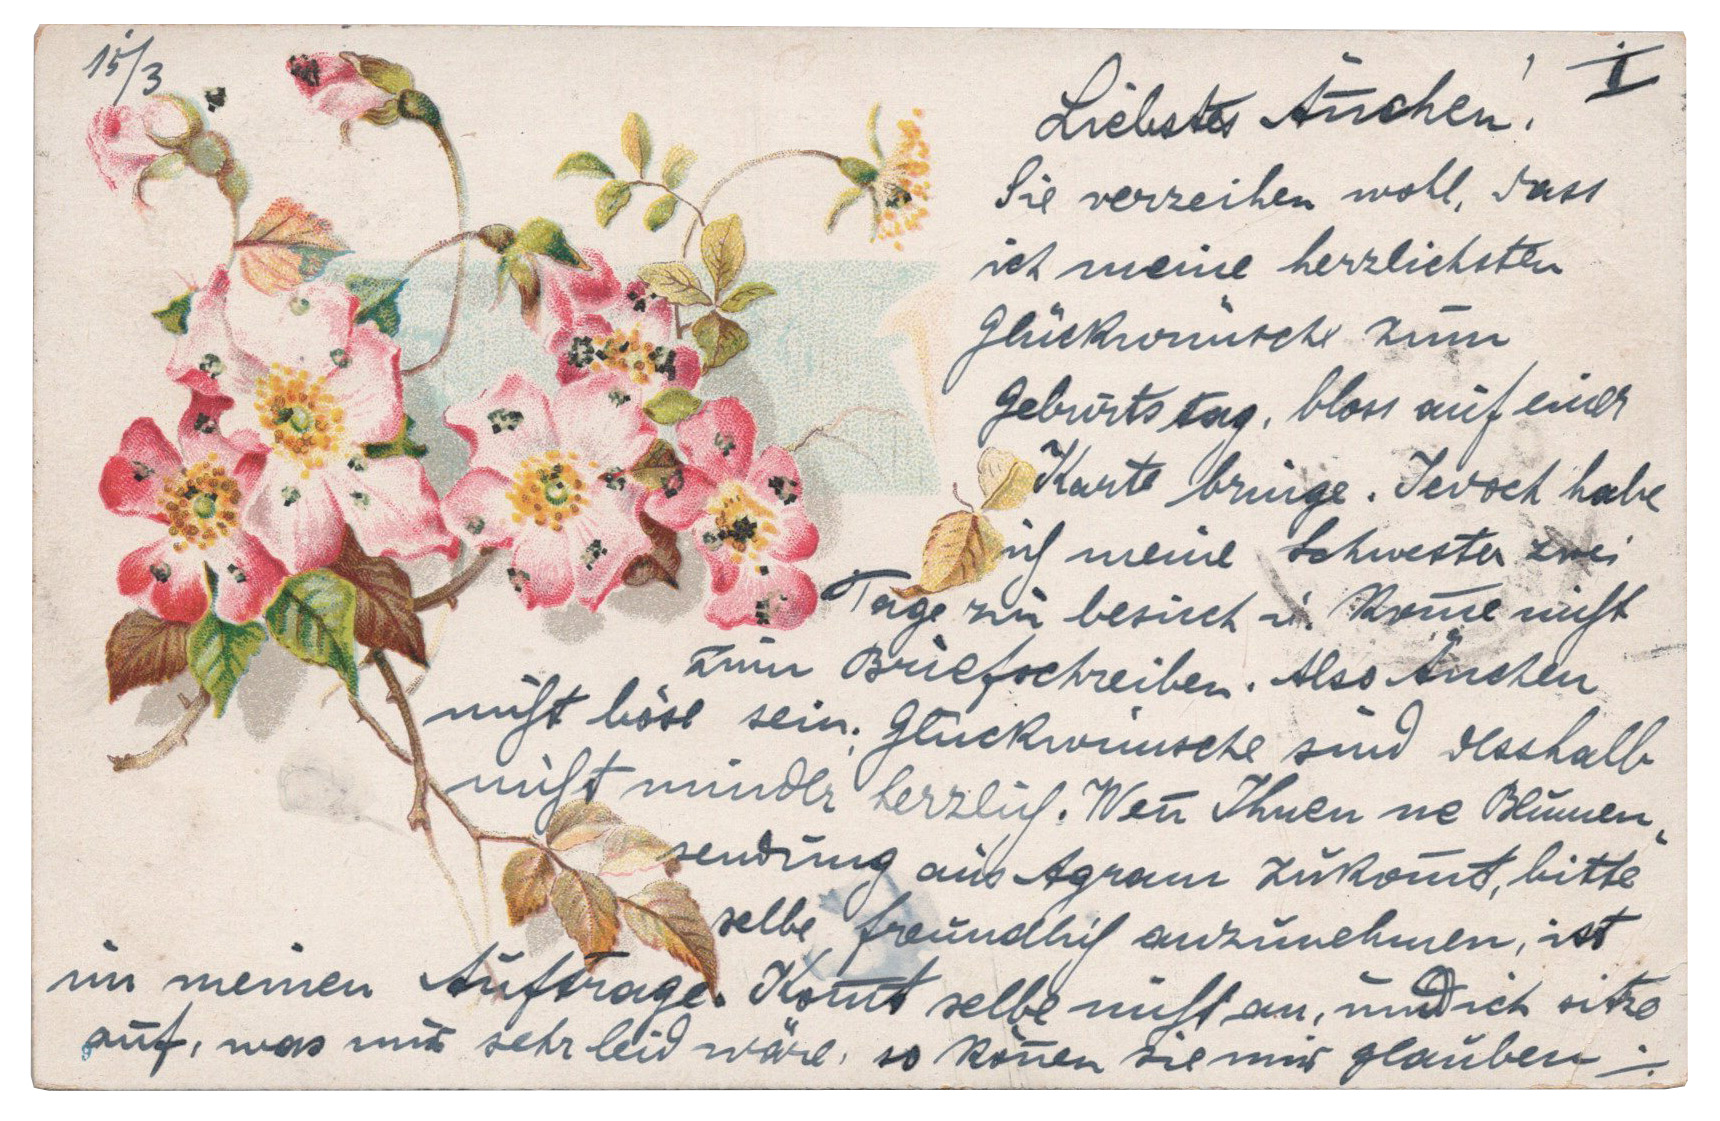 15/3
I
Liebstes Än̄chen!
Sie verzeihen wohl, dass
ich meine herzlichsten
Glückwünsche zum
Geburtstag, bloss auf einer
Karte bringe. Jedoch habe
ich meine Schwester zwei
Tage zu besuch u. kom̄e nicht
zum Briefschreiben. Also Än̄chen
nicht böse sein, Glückwünsche sind desshalb
nicht minder herzlich. Wen̄ Ihnen ne Blumen„
sendung aus Agram zukom̄t, bitte
selbe freundlich anzunehmen, ist
in meinen Auftrage. Kom̄t selbe nicht an, und ich sitze
auf, was mir sehr leid wäre, so kön̄en sie mir glauben ÷